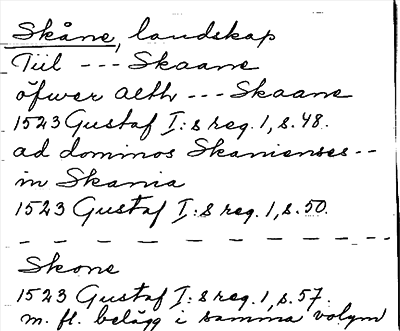 Skåne, landskap
Tiil --- Skaane
öfwer alth --- Skaane
1523 Gustaf I:s reg. 1, s. 48.
ad dominos Skanienses --
in Skania
1523 Gustaf I:s reg. 1, s. 50.
Skone
1523 Gustaf I:s reg. 1, s. 57.
m. fl. belägg i samma volym